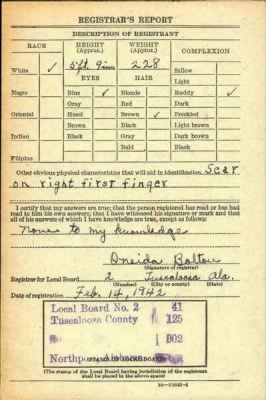 REGISTRAR'S REPORT
DESCRIPTION OF REGISTRANT
RACE HEIGHT (Approx.) WEIGHT (Approx.) COMPLEXION
White ✓ 5 ft. 9 in. 228 Sallow
EYES HAIR Light
Negro Blue ✓ Blonde Ruddy ✓
Gray Red Dark
Oriental Hazel Brown ✓ Freckled
Brown Black Light brown
Indian Black Gray Dark brown
Bald Black
Filipino
Other obvious physical characteristics that will aid in identification Scar
on right first finger
I certify that my answers are true; that the person registered has read or has had
read to him his own answers; that I have witnessed his signature or mark and that
all of his answers of which I have knowledge are true, except as follows:
None to my knowledge
Oneida Bolton
(Signature of registrar)
Registrar for Local Board 2 Tuscaloosa Ala.
(Number) (City or county) (State)
Date of registration Feb. 14, 1942
Local Board No. 2 41
Tuscaloosa County 125
1 002
Northport, Alabama
(STAMP OF LOCAL BOARD)
(The stamp of the Local Board having jurisdiction of the registrant
shall be placed in the above space)